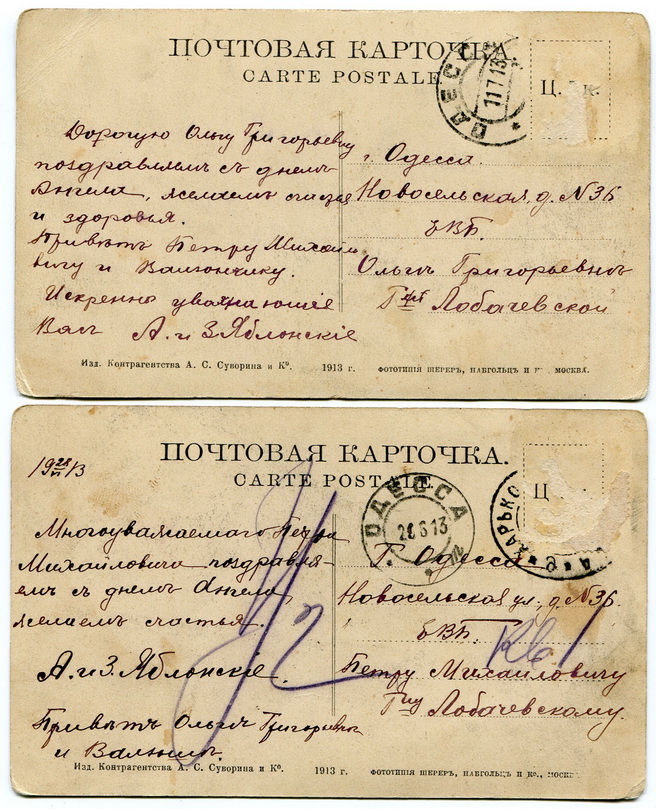 ПОЧТОВАЯ КАРТОЧКА.
CARTE POSTALE
ОДЕСС
11 7 13
Ц.
Дорогую Ольгу Григорьевну
поздравляемъ съ днемъ
Ангела, желаемъ счастья
и здоровья.
Привѣтъ Петру Михайло
вичу и
Искренно уважающіе
Васъ А. и З. Яблонскіе
г. Одесса.
Новосельская, д. № 36
Ольгѣ Григорьевнѣ
Лобачевской
Изд. Контрагентства А. С. Суворина и Ко. 1913 г. ФОТОТИПІЯ ШЕРЕРЪ, НАБГОЛЬЦЪ И МОСКВА.
ПОЧТОВАЯ КАРТОЧКА.
CARTE POSTALE.
ОДЕССА
13
ХАРЬКО
Ц
Многоуважаемаго Петра
Михайловича поздравля-
емъ съ днемъ Ангела,
желаемъ счастья.
А. и З. Яблонскіе.
Привѣтъ Ольгѣ Григорьевнѣ
и
Г. Одесса
Новосельская ул., д. № 36.
Петру Михайловичу
Лобачевскому.
Изд. Контрагентства А. С. Суворина и Ко. 1913 г. ФОТОТИПІЯ ШЕРЕРЪ, НАБГОЛЬЦЪ И Ко., МОСКВ